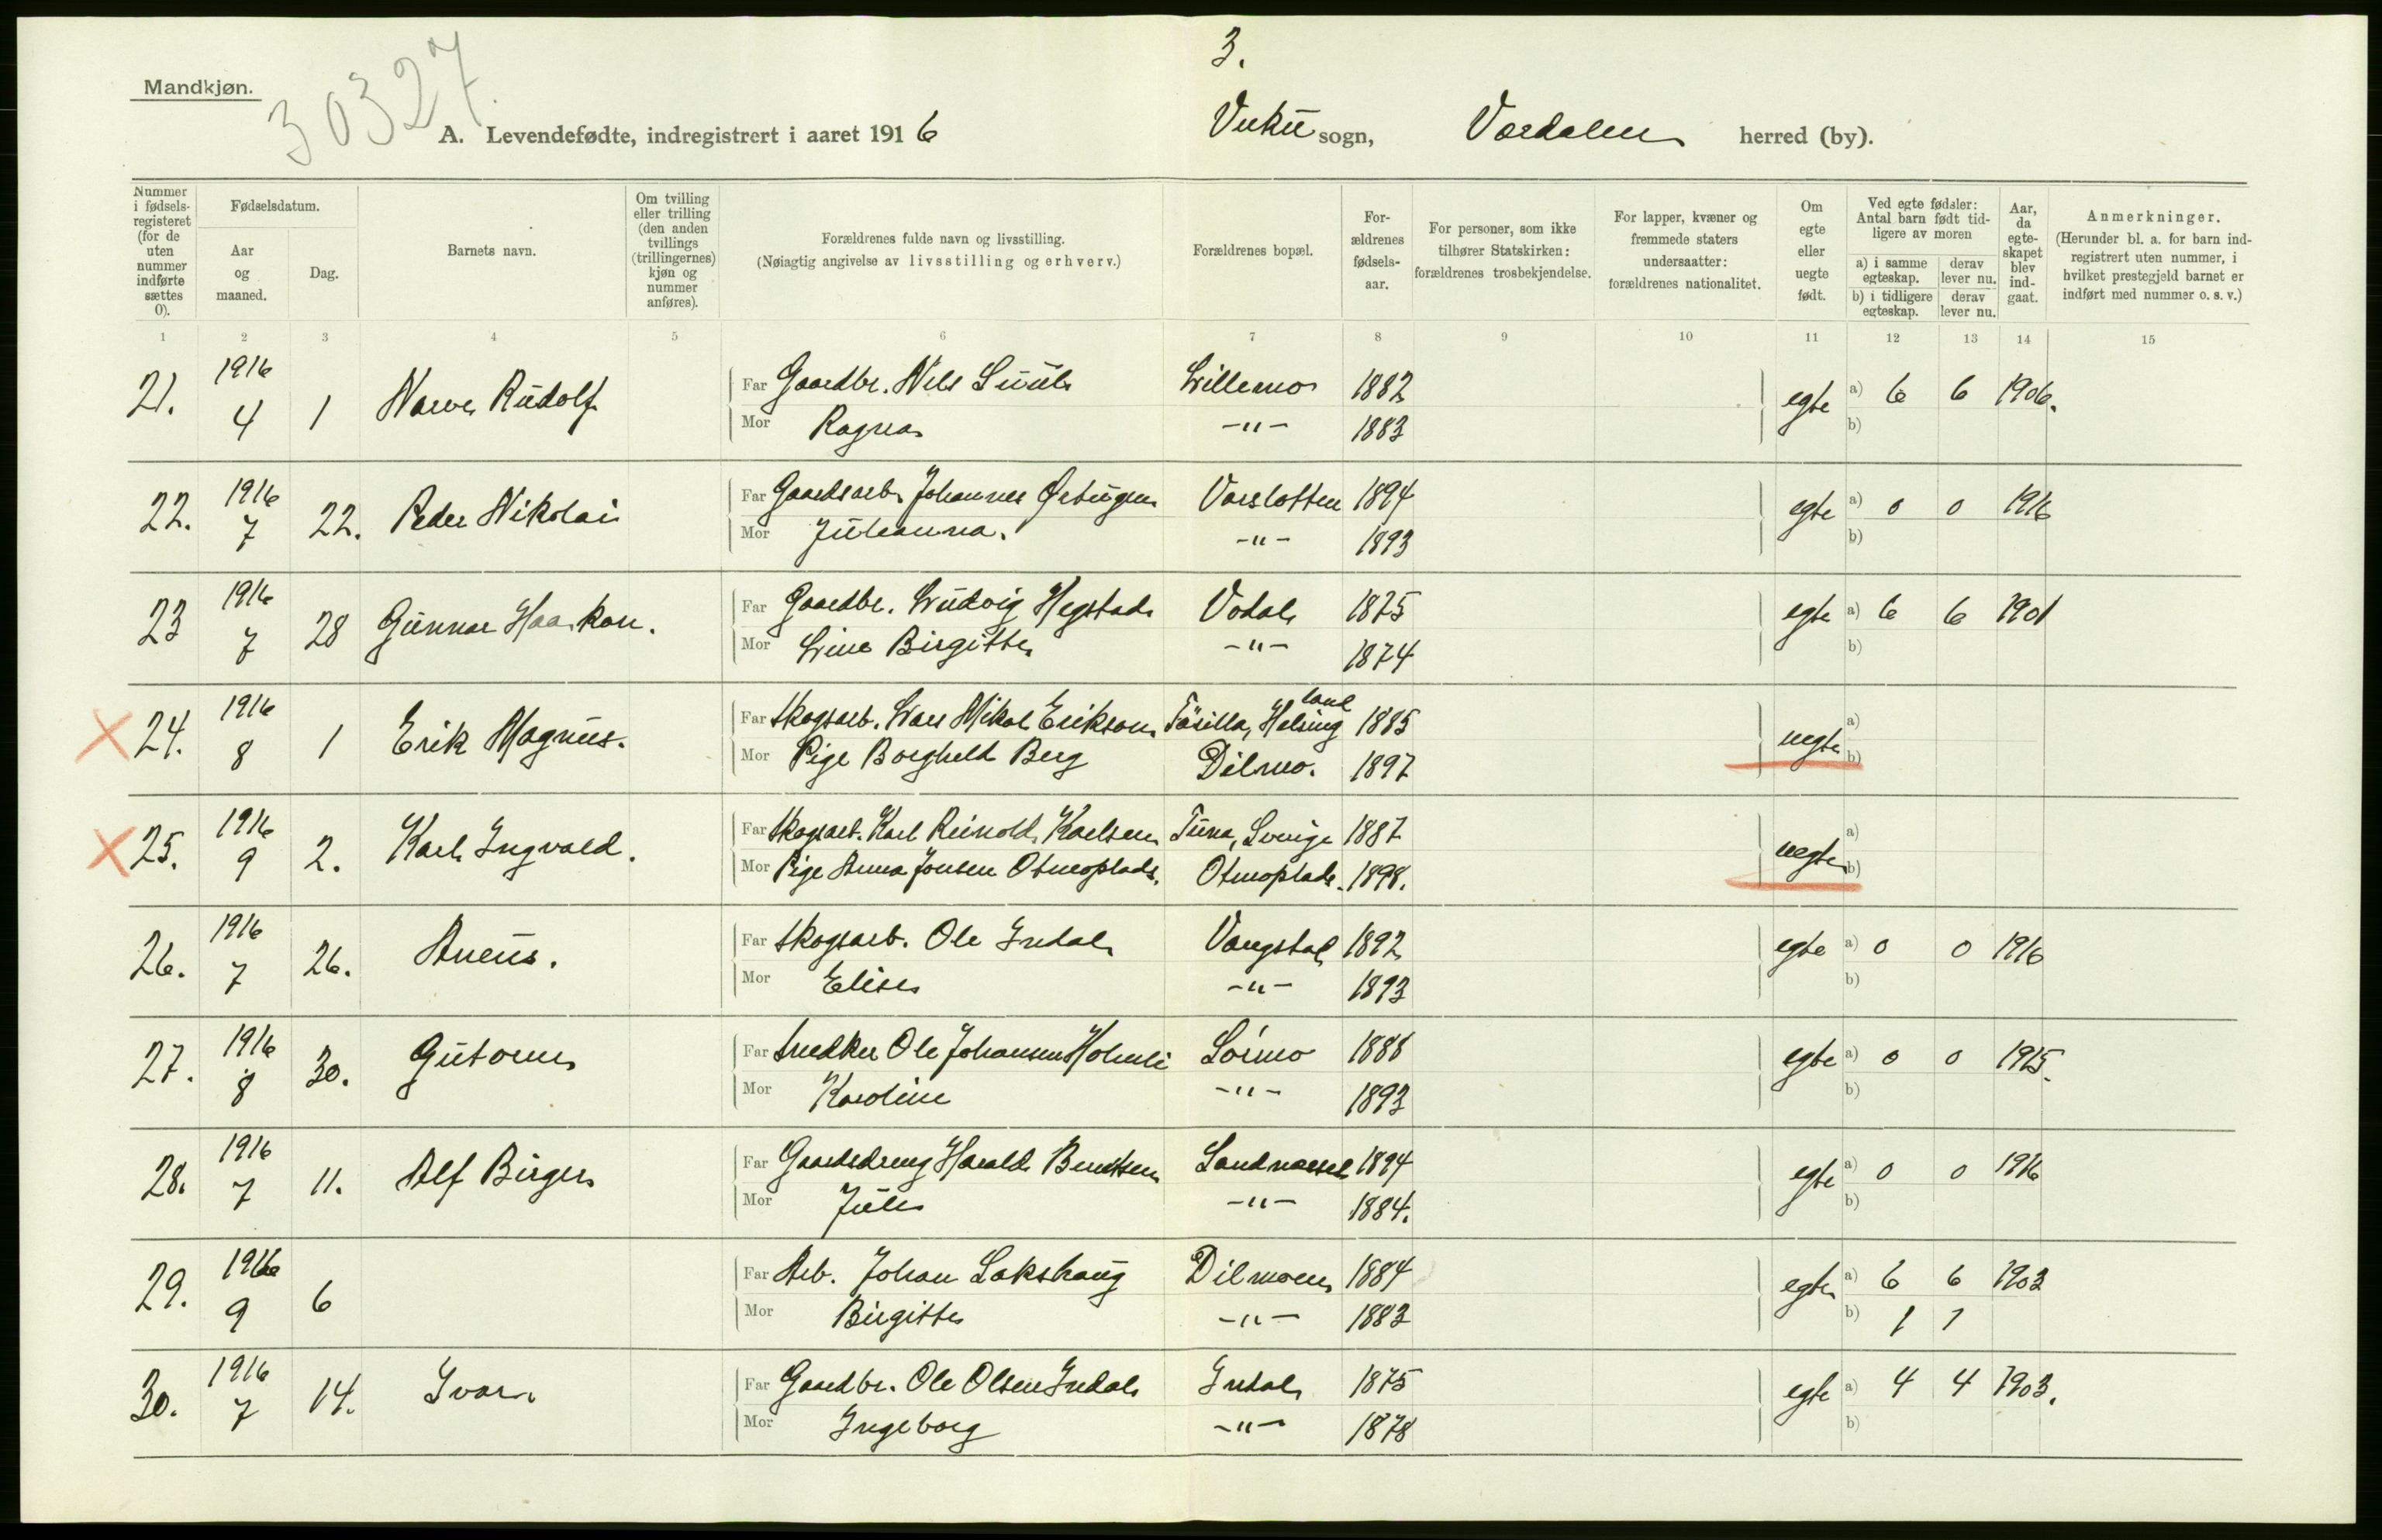 3.
Mandkjøn.
30327.
A. Levendefødte, indregistrert i aaret 1916
Vuku sogn, Værdalen herred (by).
Nummer i fødsels-registeret (for de uten nummer indførte sættes 0).
Fødselsdatum.
Aar og maaned.
Dag.
Barnets navn.
Om tvilling eller trilling (den anden tvillings (trillingernes) kjøn og nummer anføres).
Forældrenes fulde navn og livsstilling.
(Nøiagtig angivelse av livsstilling og erhverv.)
Forældrenes bopæl.
For-ældrenes fødsels-aar.
For personer, som ikke tilhører Statskirken: forældrenes trosbekjendelse.
For lapper, kvæner og fremmede staters undersaatter: forældrenes nationalitet.
Om egte eller uegte født.
Ved egte fødsler: Antal barn født tid-ligere av moren
a) i samme egteskap. derav lever nu.
b) i tidligere egteskap. derav lever nu.
Aar, da egte-skapet blev ind-gaat.
Anmerkninger.
(Herunder bl. a. for barn ind-registrert uten nummer, i hvilket prestegjeld barnet er indført med nummer o. s. v.)
1 2 3 4 5 6 7 8 9 10 11 12 13 14 15
21. 1916 4 1 Rudolf Far Gaardbr. Nils Willemo 1882 egte a) 6 6 1906.
Mor Ragna -"- 1883 b)
22. 1916 7 22. Peder Nikolai Far Gaardsarb. Johannes Vorslotten 1894 egte a) 0 0 1916
Mor Julianna. -"- 1893 b)
23 1916 7 28 Gunnar Haakon. Far Gaardbr. Ludvig Hegstad Vodal 1875 egte a) 6 6 1901
Mor Line Birgitte -"- 1874 b)
24. 1916 8 1 Erik Magnus. Far Skogsarb. Lars Mikal Erikson Färilla, Helsingland 1885 uegte a)
Mor Pige Borghild Berg Dilmo. 1897 b)
25. 1916 9 2. Karl Ingvald. Far Skogsarb. Karl Reinold Karlsen Tuna, Sverige 1887 uegte a)
Mor Pige Anna Jonsen Otmoplads. Otmoplads. 1898. b)
26. 1916 7 26. Aneus. Far Skogsarb. Ole Indal Vangstad 1892 egte a) 0 0 1916
Mor Elise -"- 1893 b)
27. 1916 8 30. Gutorm Far Snedker Ole Johansen Holmli Sørmo 1888 egte a) 0 0 1915.
Mor Karoline -"- 1893 b)
28. 1916 7 11. Alf Birger Far Gaardsdreng Harald Berntsen 1894 egte a) 0 0 1916
Mor Julie -"- 1884. b)
29. 1916 9 6 Far Arb. Johan Lakshaug Dilmoen 1884 egte a) 6 6 1903
Mor Birgitte -"- 1883 b) 1 1
30. 1916 7 14. Ivar. Far Gaardbr. Ole Olsen Indal Indal 1875 egte a) 4 4 1903.
Mor Ingeborg -"- 1878 b)